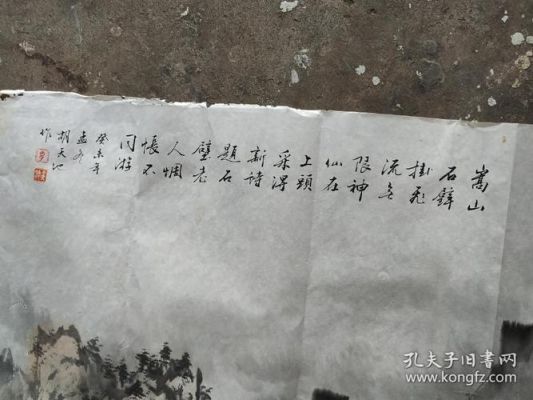 嵩山
石壁
掛飛
流無
限神
仙在
上頭
采得
新詩
題石
壁老
人惆
悵不
同游
癸未年
孟冬
胡天池
作
孔夫子旧书网
www.kongfz.com